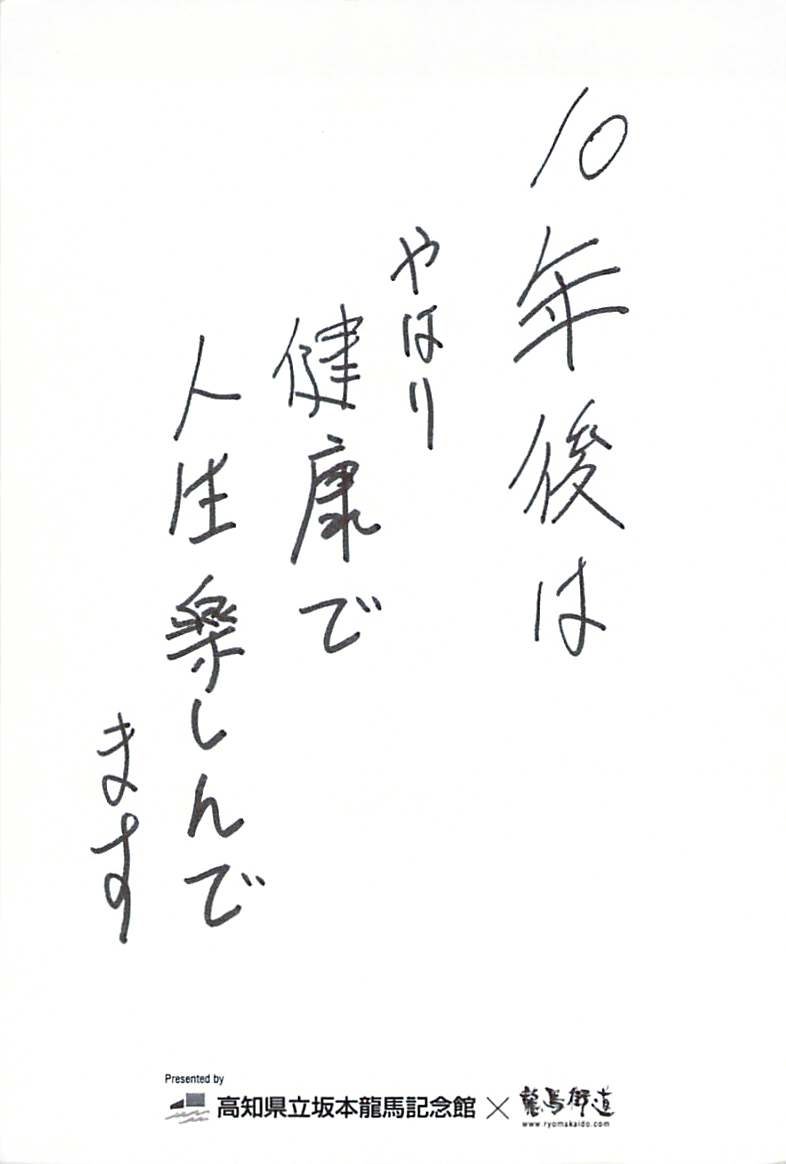 10年後は
やはり
健康で
人生楽しんで
ます
Presented by
高知県立坂本龍馬記念館 × 龍馬街道
www.ryomakaido.com